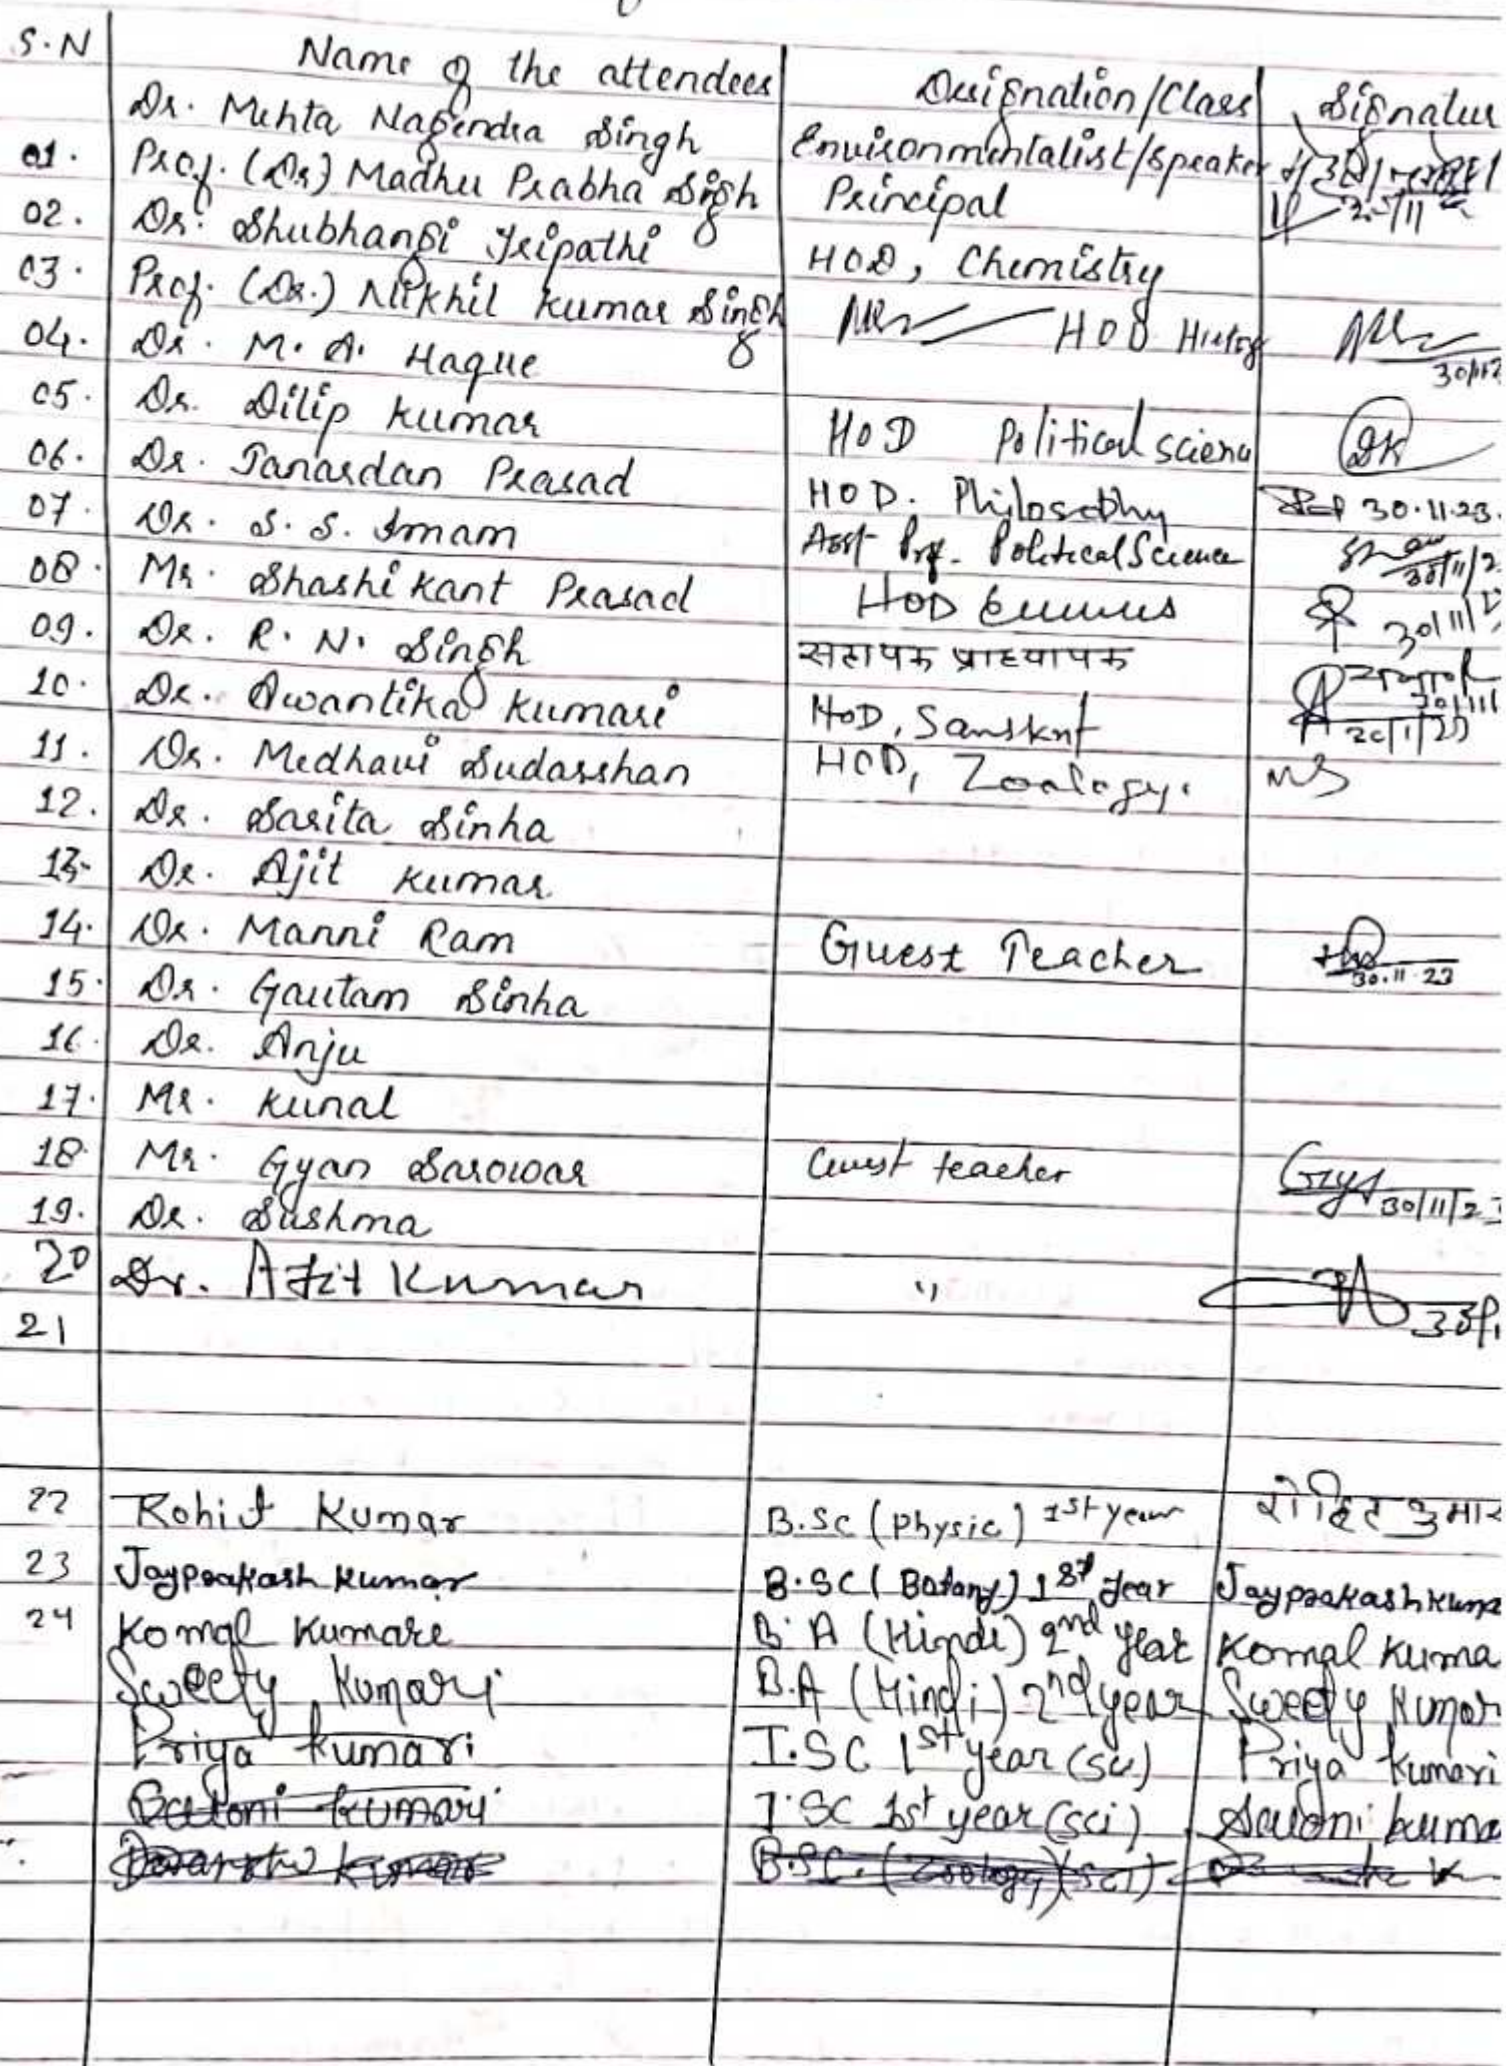 S.N Name of the attendees Designation/Class Signatur
Dr. Mehta Nagendra Singh Environmentalist/Speaker
01. Prof. (Dr) Madhu Prabha Singh Principal
02. Dr. Shubhangi Tripathi HOD, Chemistry
03. Prof. (Dr.) Nikhil Kumar Singh HOD
04. Dr. M. A. Haque
05. Dr. Dilip Kumar HOD Political Scienc DK
06. Dr. Janardan Prasad HOD. Philosophy 30.11.23.
07. Dr. S. S. Imam Asst Prof. Political Science
08. Mr. Shashi Kant Prasad HOD
09. Dr. R. N. Singh सहायक प्राध्यापक
10. Dr. Awantika Kumari HOD, Sanskrit
11. Dr. Medhavi Sudarshan HOD, Zoology. MS
12. Dr. Sarita Sinha
13. Dr. Ajit Kumar
14. Dr. Manni Ram Guest Teacher 30.11.23
15. Dr. Gautam Sinha
16. Dr. Anju
17. Mr. Kunal
18. Mr. Gyan Sarowar Guest teacher 30/11/23
19. Dr. Sushma
20 Dr. Ajit Kumar "
21
22 Rohit Kumar B.SC (Physic) 1st year रोहित कुमार
23 Jayprakash Kumar B.SC (Botany) 1st year Jayprakash Kuma
24 Komal Kumari B.A (Hindi) 2nd year Komal Kuma
Sweety Kumari B.A (Hindi) 2nd year Sweety Kumar
Priya Kumari I.SC 1st year (sci) Priya Kumari
Saloni Kumari I.SC 1st year (sci) Saloni kuma
B.SC. (Zoology)(sci)